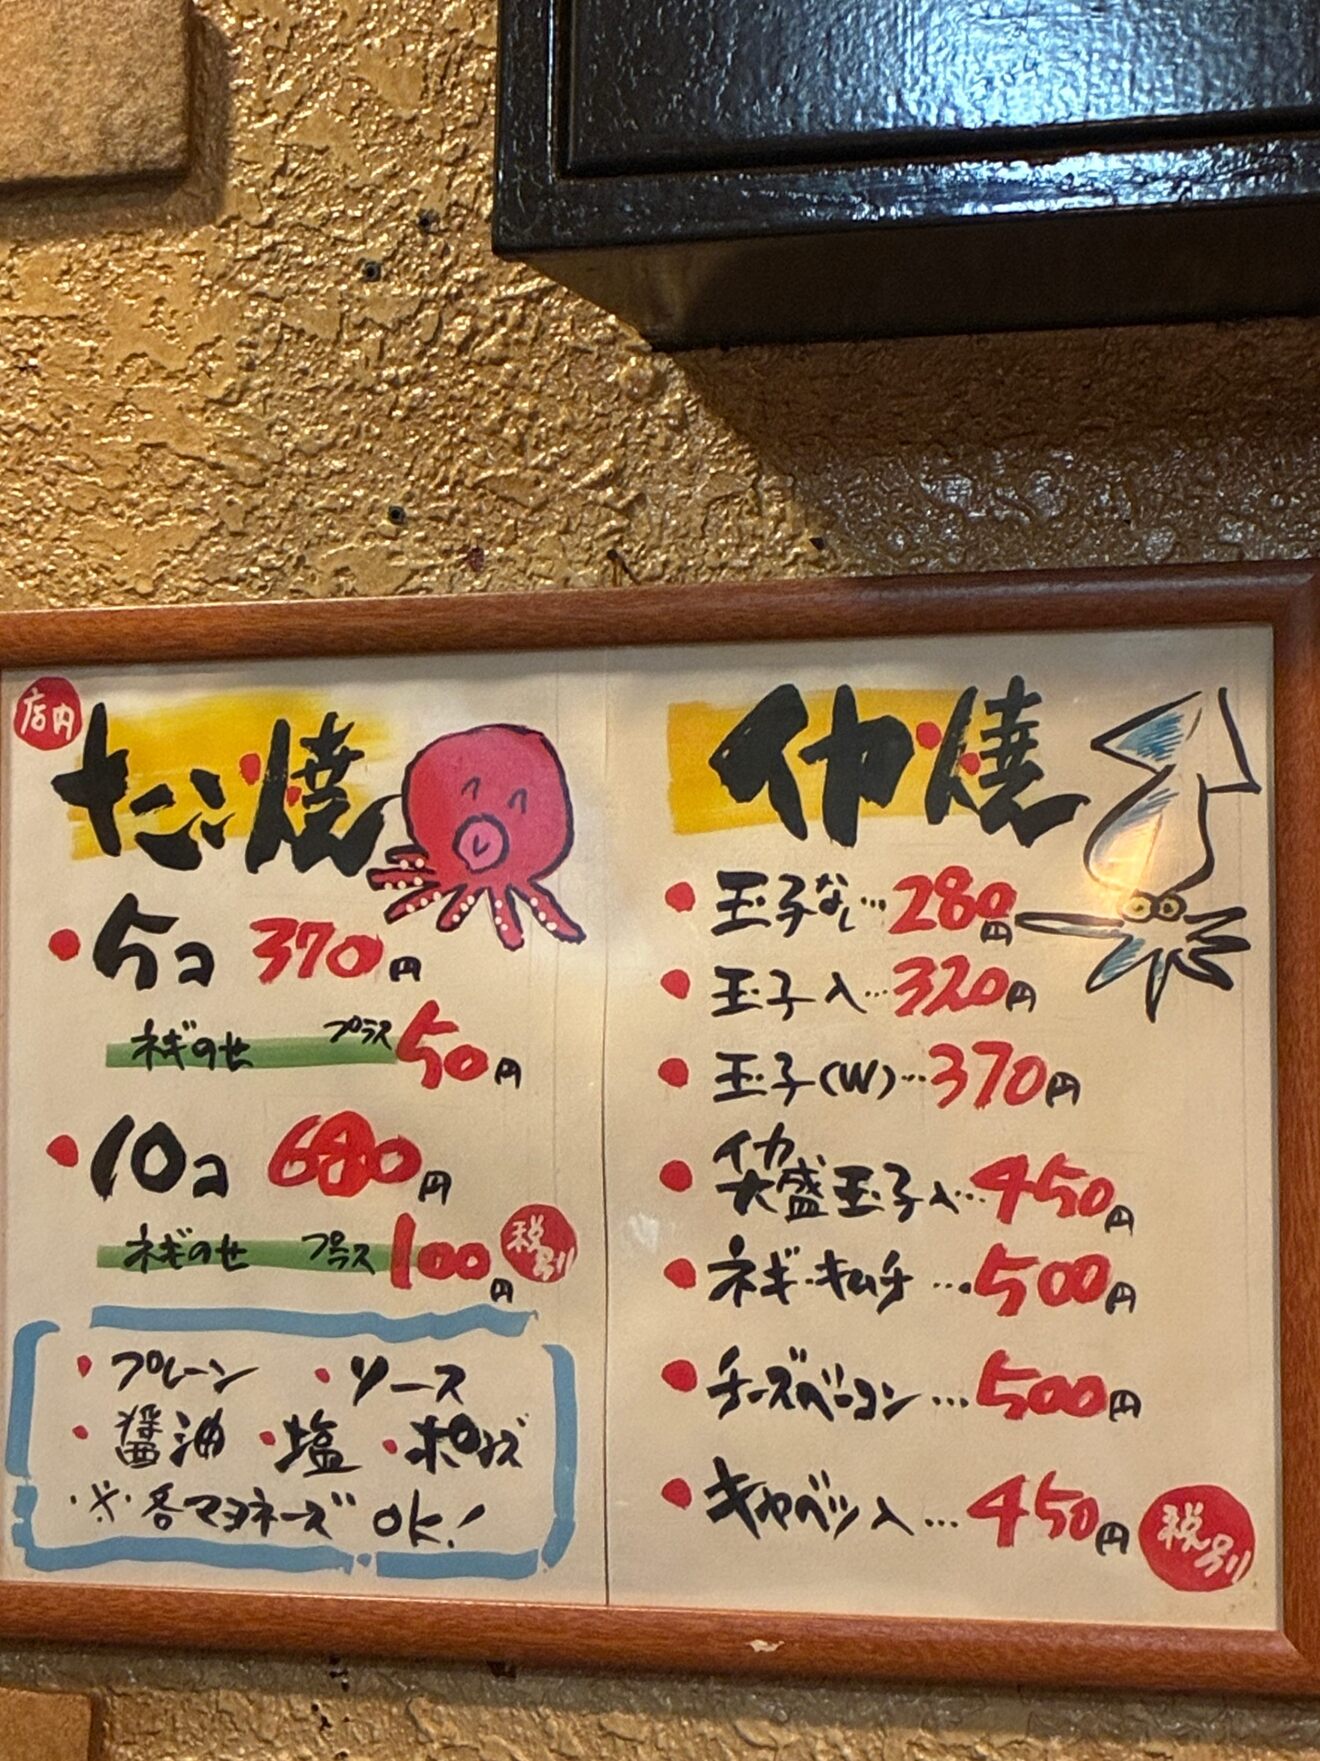 店内
たこ焼
5コ 370円
ネギのせ プラス50円
10コ 680円
ネギのせ プラス100円
税別
・プレーン ・ソース
・醤油 ・塩 ・ポン酢
※各マヨネーズ OK!
イカ焼
・玉子なし…280円
・玉子入…320円
・玉子(W)…370円
・イカ大盛玉子入…450円
・ネギ・キムチ…500円
・チーズベーコン…500円
・キャベツ入…450円
税別